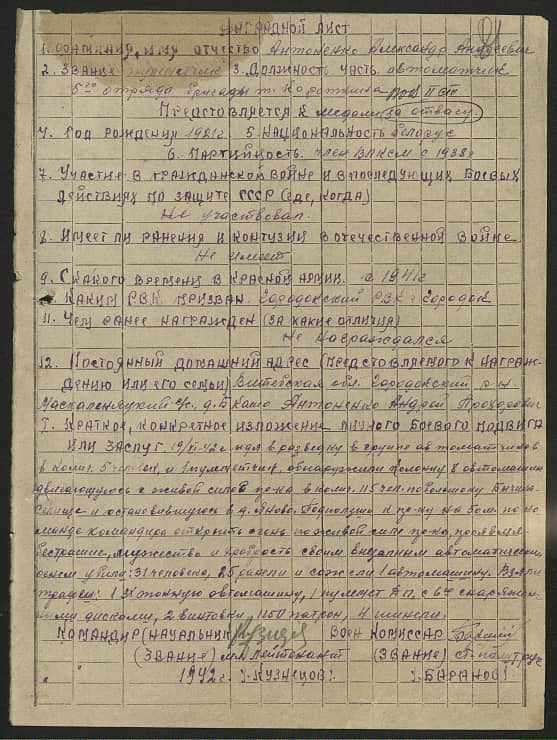 НАГРАДНОЙ ЛИСТ
1. Фамилия, имя отчество Антоненко Александр Андреевич
2. Звание 3. Должность часть автоматчик
5го отряда бригады т. Короткина
Представляется к медали за отвагу
4. Год рождения 1921г 5. Национальность белорус
6. Партийность. член ВЛКСМ с 1938г
7. Участие в гражданской войне и в последующих боевых
действиях по защите СССР (где, когда)
Не участвовал.
8. Имеет ли ранения и контузии в отечественной войне
Не имеет
9. С какого времени в Красной армии. с 1941г
Каким РВК призван. Городокский РВК г. Городок
11. Чем ранее награжден (за какие отличия)
Не награждался
12. Постоянный домашний адрес (представляемого к награж-
дению или его семьи) Витебская обл. Городокский р-н
с/с. д. Антоненко Андрей Прохорович
I. Краткое, конкретное изложение личного боевого подвига
или заслуг. идя в разведку в группе автоматчиков
в колич. 5 человек, и 1 пулеметчик, обнаружили колонну 8 автомашин
двигающуюся с живой силой пр-ка в колич. 115 чел. по большаку
и остановившуюся в д. Яново. к пр-ку на по ко-
манде командира открыть огонь по живой силе пр-ка, проявляя
бесстрашие, мужество и храбрость своим внезапным автоматическим
огнем убили: 31 человека, 25 ранели и сожгли 1 автомашину. Взяты
трофеи: тонную автомашину, 1 пулемет с снаряжен-
ными дисками, 2 винтовки, 1150 патрон, 4 шинели.
Командир (начальник) Воен комиссар
(звание) мл. лейтенант (звание) ст. политрук
1942г. /Кузнецов/ /Баранов/